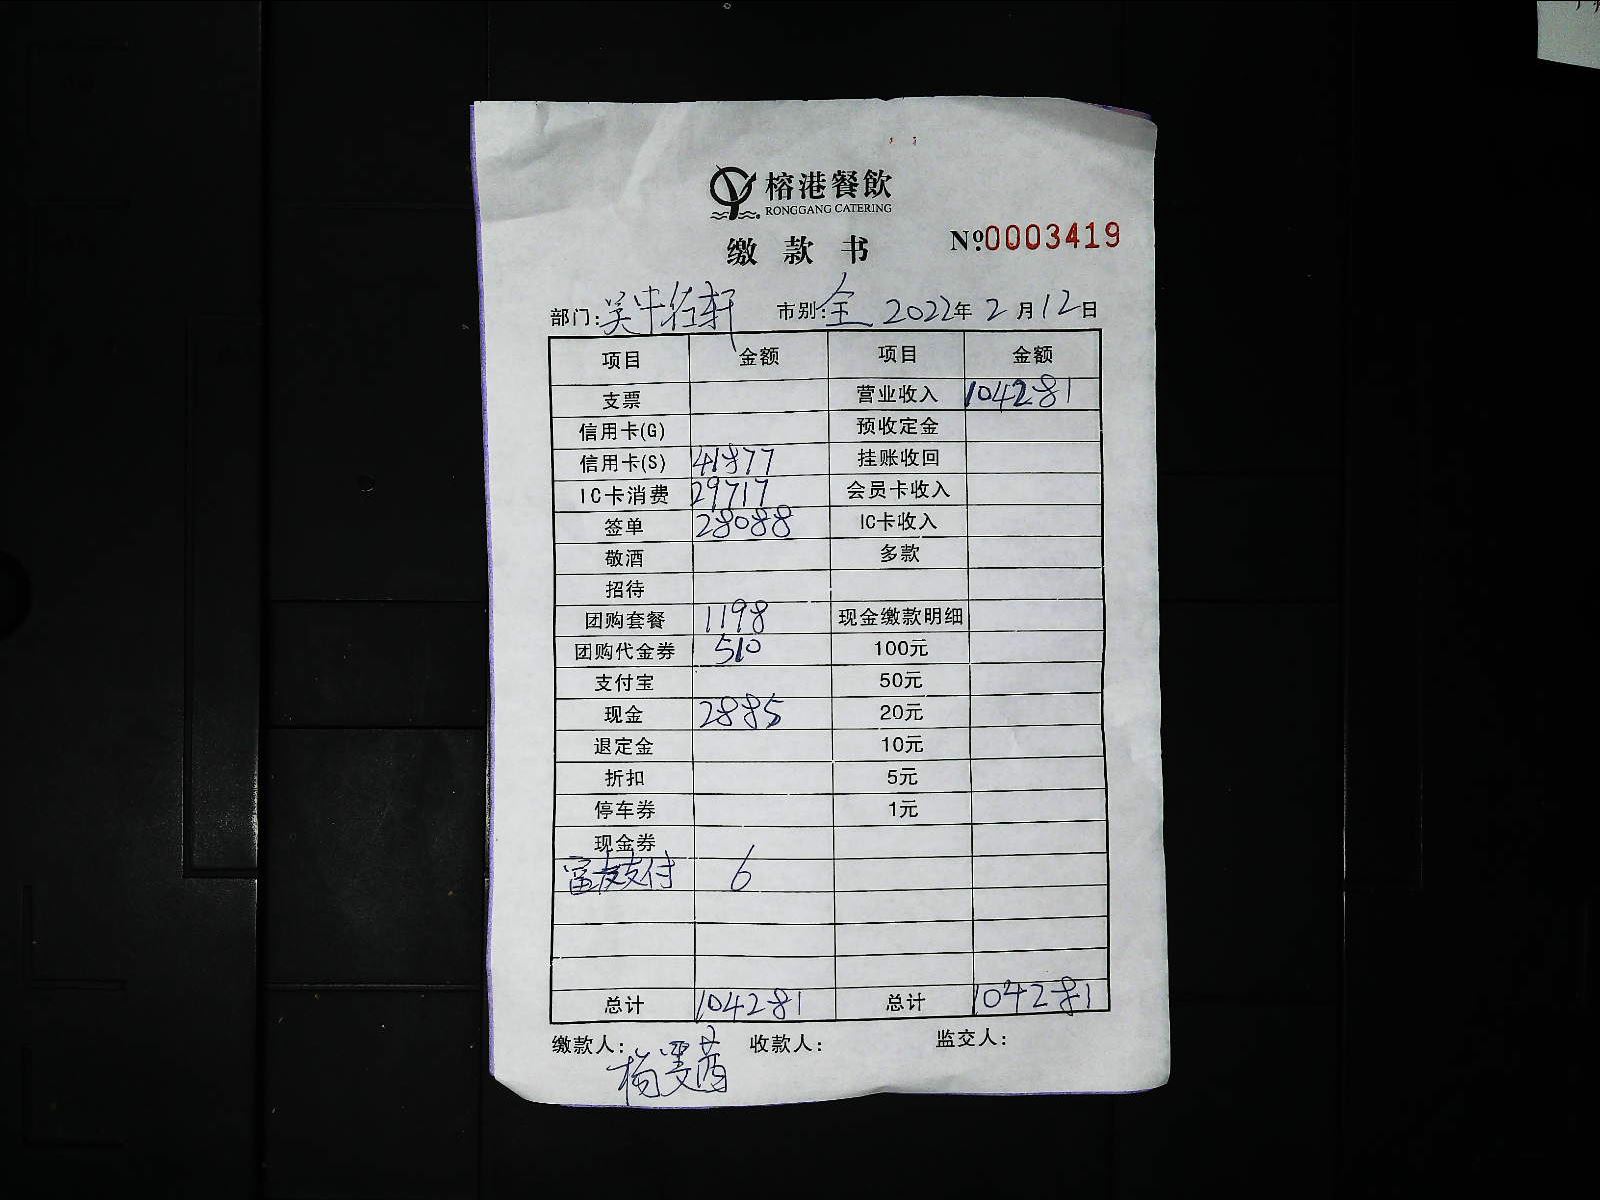 榕港餐飲
RONGGANG CATERING
缴款书 №0003419
部门: 轩 市别:全 2022年2月12日
项目 金额 项目 金额
支票 营业收入 104281
信用卡(G) 预收定金
信用卡(S) 41877 挂账收回
IC卡消费 29717 会员卡收入
签单 28088 IC卡收入
敬酒 多款
招待
团购套餐 1198 现金缴款明细
团购代金券 510 100元
支付宝 50元
现金 2885 20元
退定金 10元
折扣 5元
停车券 1元
现金券
富友支付 6
总计 104281 总计 104281
缴款人: 杨 收款人: 监交人: